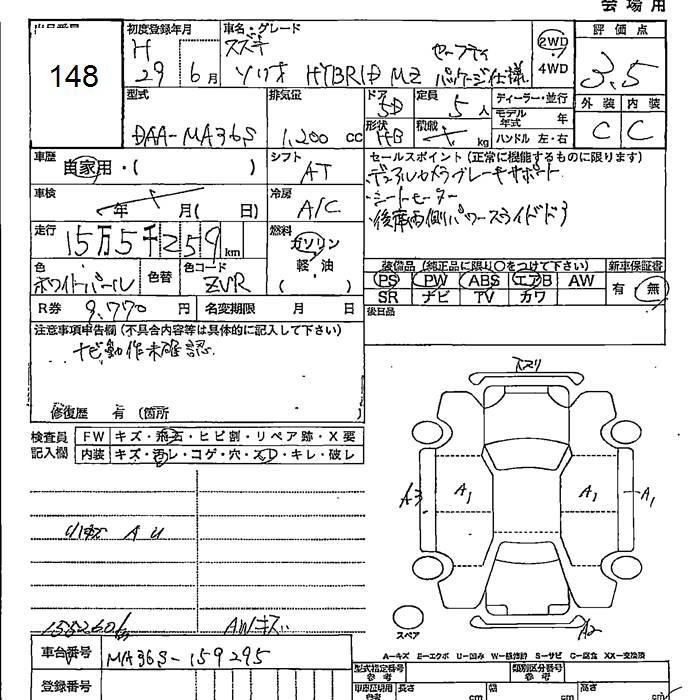 会場用
出品番号
148
初度登録年月
H
29 6月
車名・グレード
スズキ
ソリオ HYBRID MZ セーフティ
パッケージ仕様
2WD
4WD
評価点
3.5
外装 内装
C C
型式
DAA-MA36S
排気量
1,200 cc
ドア
5D
定員
5人
形状
HB
積載
kg
ディーラー・並行
モデル年式 年
ハンドル 左・右
車歴
自家用・( )
シフト
AT
車検
年 月( 日)
冷房
A/C
走行
15万5千259km
燃料
ガソリン
軽・油
色
ホワイトパール
色替
色コード
ZVR
R券 9,770円
名変期限 月 日
セールスポイント(正常に機能するものに限ります)
・デュアルカメラブレーキサポート
・シートヒーター
・後席両側パワースライドドア
装備品(純正品に限り○をつけて下さい)
PS PW ABS エアB AW
SR ナビ TV カワ
新車保証書
有 無
後日品
注意事項申告欄(不具合内容等は具体的に記入して下さい)
ナビ動作未確認
修復歴 有(箇所 )
検査員
記入欄
FW キズ・飛石・ヒビ割・リペア跡・X要
内装 キズ・汚レ・コゲ・穴・スレ・キレ・破レ
A U
155260km
AWキズ
車台番号
MA36S-159295
登録番号
スリ
A3
A1
A1
A1
A2
スペア
A-キズ E-エクボ U-凹み W-板修跡 S-サビ C-腐食 XX-交換済
型式指定番号
参考
類別区分番号
参考
車庫証明用
参考
長さ cm
幅 cm
高さ cm